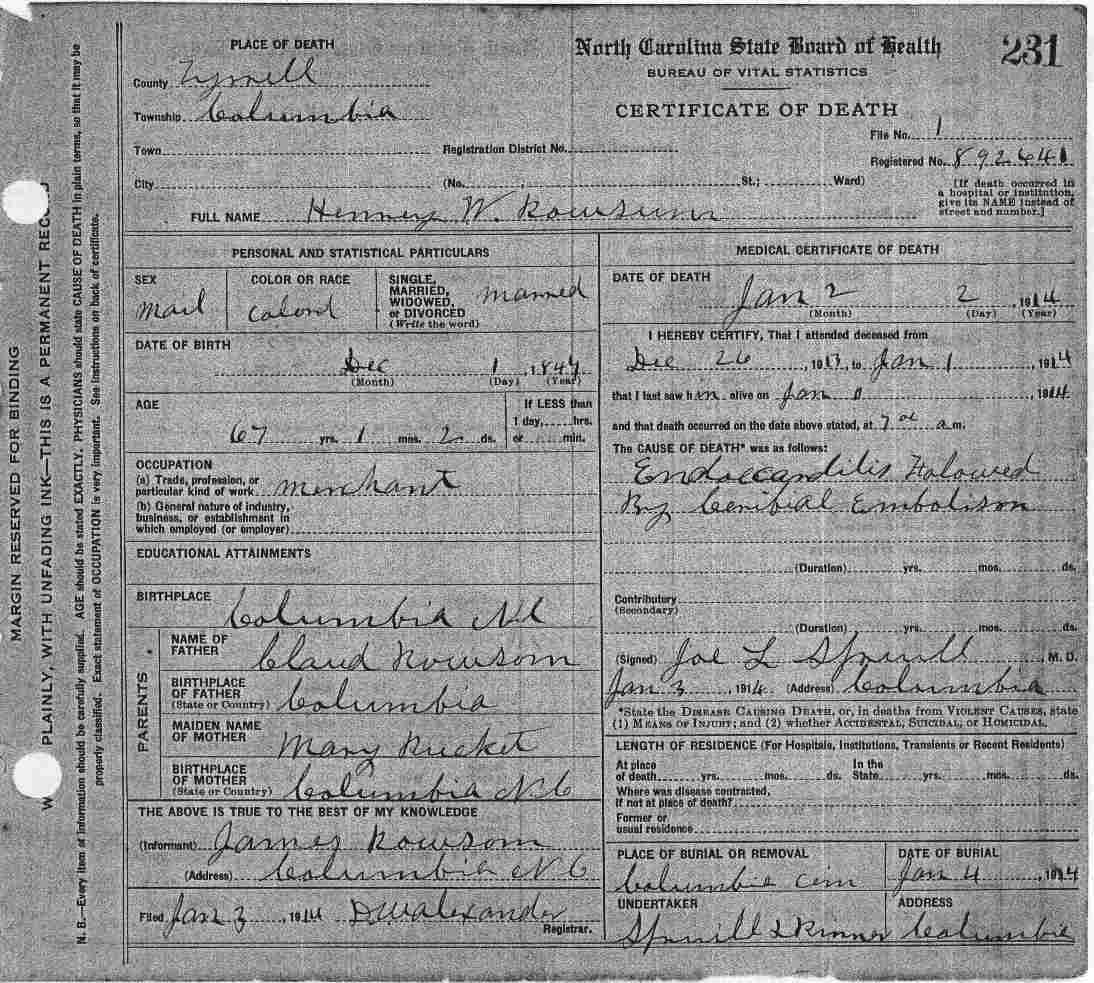 PLACE OF DEATH
North Carolina State Board of Health
231
BUREAU OF VITAL STATISTICS
CERTIFICATE OF DEATH
County Tyrrell
Township Columbia
File No. 1
Town
Registration District No.
Registered No. 892641
City
(No. , St.; Ward)
[If death occurred in a hospital or institution, give its NAME instead of street and number.]
FULL NAME Hennery W. Rowsum
PERSONAL AND STATISTICAL PARTICULARS
SEX
mail
COLOR OR RACE
Colord
SINGLE, MARRIED, WIDOWED, or DIVORCED (Write the word)
married
DATE OF BIRTH
Dec 1, 184
(Month) (Day) (Year)
AGE
67 yrs. 1 mos. 2 ds.
If LESS than 1 day, hrs. or min.
OCCUPATION
(a) Trade, profession, or particular kind of work merchant
(b) General nature of industry, business, or establishment in which employed (or employer)
EDUCATIONAL ATTAINMENTS
BIRTHPLACE Columbia N C
PARENTS
NAME OF FATHER Claud Rowsom
BIRTHPLACE OF FATHER (State or Country) Columbia
MAIDEN NAME OF MOTHER Mary Rucket
BIRTHPLACE OF MOTHER (State or Country) Columbia N C
THE ABOVE IS TRUE TO THE BEST OF MY KNOWLEDGE
(Informant) James Rowsom
(Address) Columbia N C
Filed Jan 3, 1914 D W Alexander
Registrar.
MEDICAL CERTIFICATE OF DEATH
DATE OF DEATH
Jan 2 2, 1914
(Month) (Day) (Year)
I HEREBY CERTIFY, That I attended deceased from
Dec 26, 1913, to Jan 1, 1914
that I last saw him alive on Jan 1914
and that death occurred on the date above stated, at 7 a m.
The CAUSE OF DEATH* was as follows:
Endoccarditis Foloowed
By Ceribial Embolison
(Duration) yrs. mos. ds.
Contributory (Secondary)
(Duration) yrs. mos. ds.
(Signed) Joe L Spruill, M. D.
Jan 3, 1914 (Address) Columbia
*State the DISEASE CAUSING DEATH, or, in deaths from VIOLENT CAUSES, state (1) MEANS OF INJURY; and (2) whether ACCIDENTAL, SUICIDAL, or HOMICIDAL.
LENGTH OF RESIDENCE (For Hospitals, Institutions, Transients or Recent Residents)
At place of death yrs. mos. ds. In the State yrs. mos. ds.
Where was disease contracted, if not at place of death?
Former or usual residence
PLACE OF BURIAL OR REMOVAL
Columbia cem
DATE OF BURIAL
Jan 4, 1914
UNDERTAKER
Spruill &
ADDRESS
Columbia
MARGIN RESERVED FOR BINDING
W PLAINLY, WITH UNFADING INK—THIS IS A PERMANENT REC D
N. B.—Every item of information should be carefully supplied. AGE should be stated EXACTLY. PHYSICIANS should state CAUSE OF DEATH in plain terms, so that it may be
properly classified. Exact statement of OCCUPATION is very important. See instructions on back of certificate.